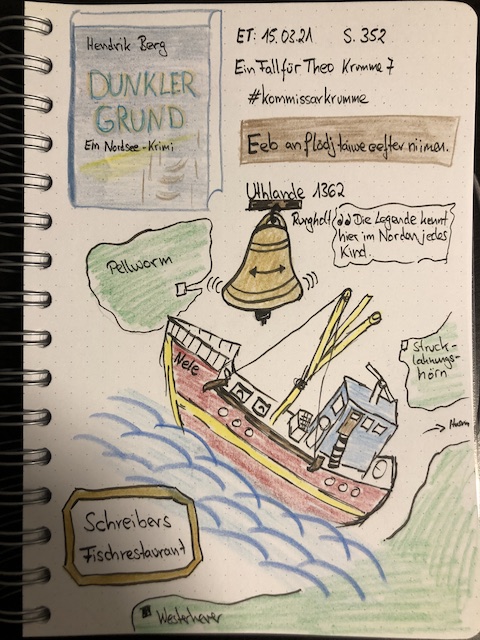 Hendrik Berg
DUNKLER
GRUND
Ein Nordsee-Krimi
ET: 15.03.21 S. 352
Ein Fall für Theo Krumme 7
#kommissarkrumme
Eeb an flödj täiwe eefter niimen.
Uthlande 1362
Rungholt
Die Legende kennt
hier im Norden jedes
Kind.
Pellworm
Nele
Struck-
lahnungs-
hörn
→ Husum
Schreibers
Fischrestaurant
Westerhever